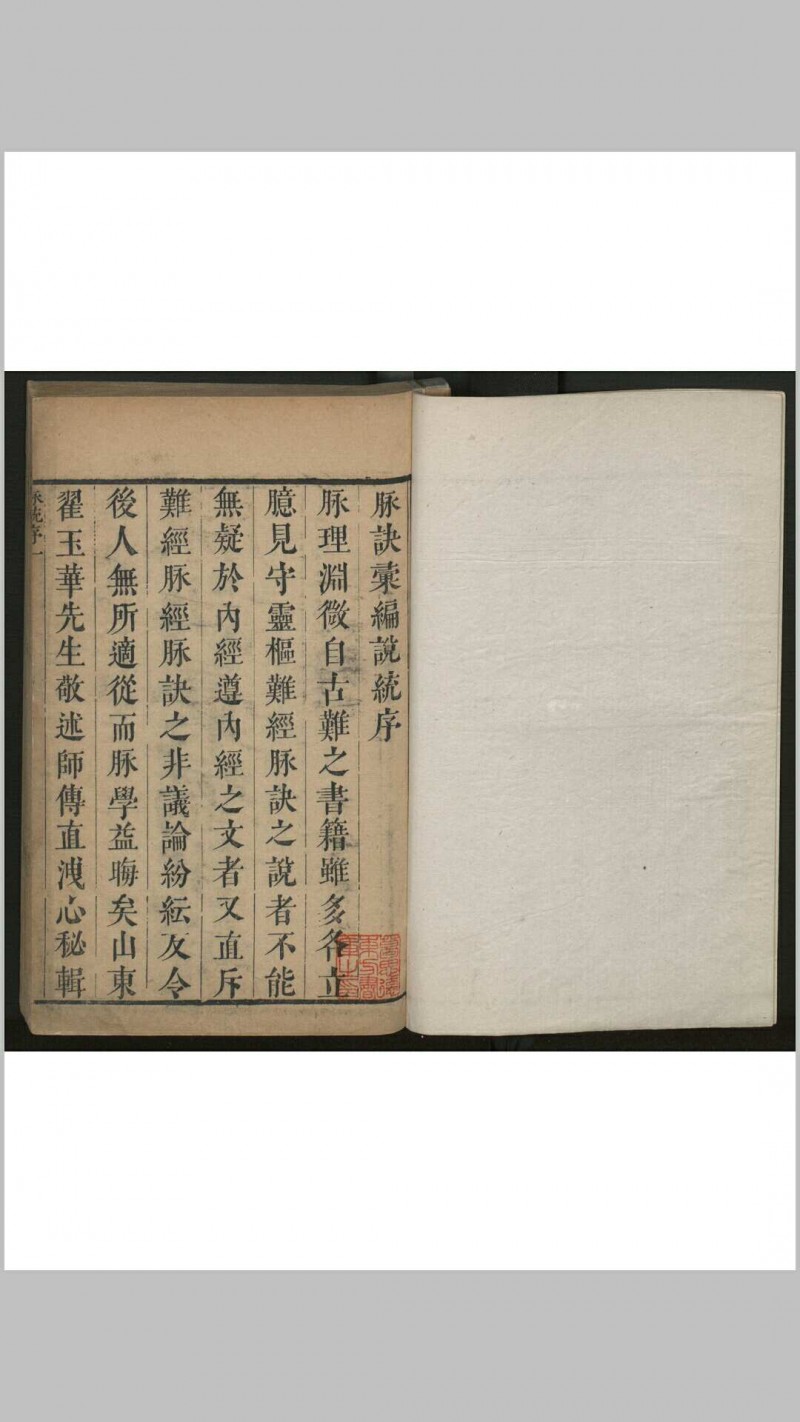 脉訣彚編說統序
脉理淵微自古難之書籍雖多各立
臆見守靈樞難經脉訣之說者不能
無疑於內經遵內經之文者又直斥
難經脉經脉訣之非議論紛紜反令
後人無所適從而脉學益晦矣山東
翟玉華先生敬述師傳直洩心秘輯